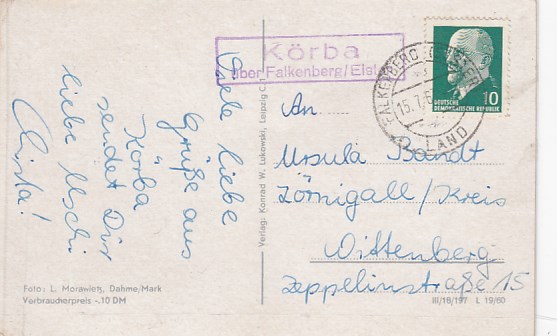 Körba
über Falkenberg/Elst
Viele liebe
Grüße aus
Körba
sendet Dir
liebe Uschi
Christa!
Foto: L. Morawietz, Dahme/Mark
Verbraucherpreis -.10 DM
Verlag: Konrad W. Lukowski, Leipzig C 1
FALKENBERG (ELSTER)
15.7.6
LAND
DEUTSCHE
DEMOKRATISCHE REPUBLIK
10
An
Ursula Brandt
Zörnigall/Kreis
Wittenberg
Zeppelinstraße 15
III/18/197 L 19/60